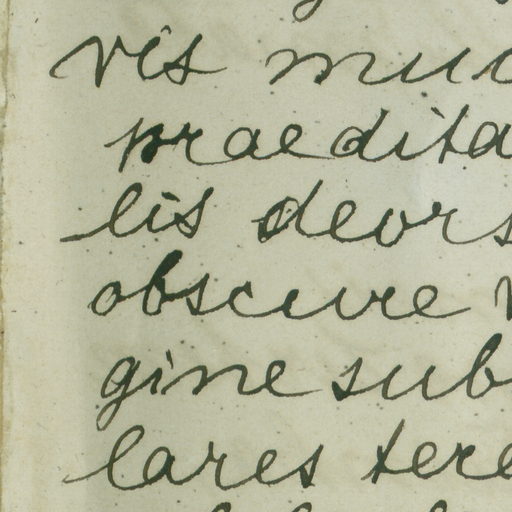 vis muc
praedita
lis deors
obscure
gine sub
lares tere